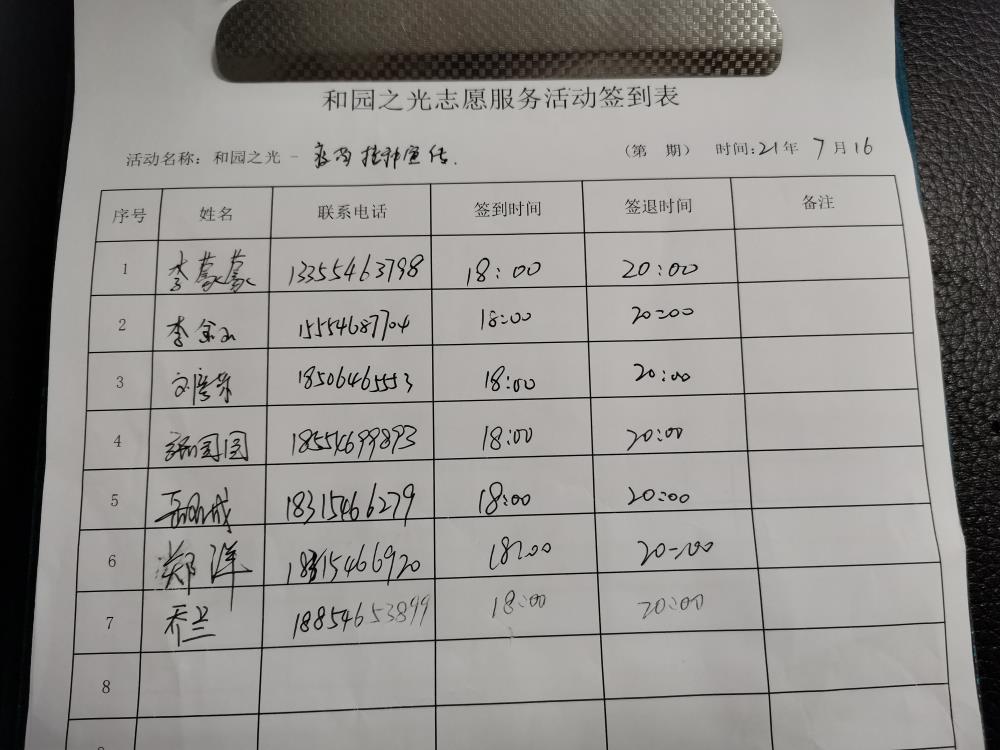 和园之光志愿服务活动签到表
活动名称：和园之光 - 疫苗接种宣传. （第 期） 时间:21年 7月16
序号 姓名 联系电话 签到时间 签退时间 备注
1 李蒙蒙 13355463798 18:00 20:00
2 李金山 15554687704 18:00 20:00
3 18506465553 18:00 20:00
4 张园园 18554699893 18:00 20:00
5 18315466279 18:00 20:00
6 郑洋 18315466920 18:00 20:00
7 乔兰 18854653899 18:00 20:00
8